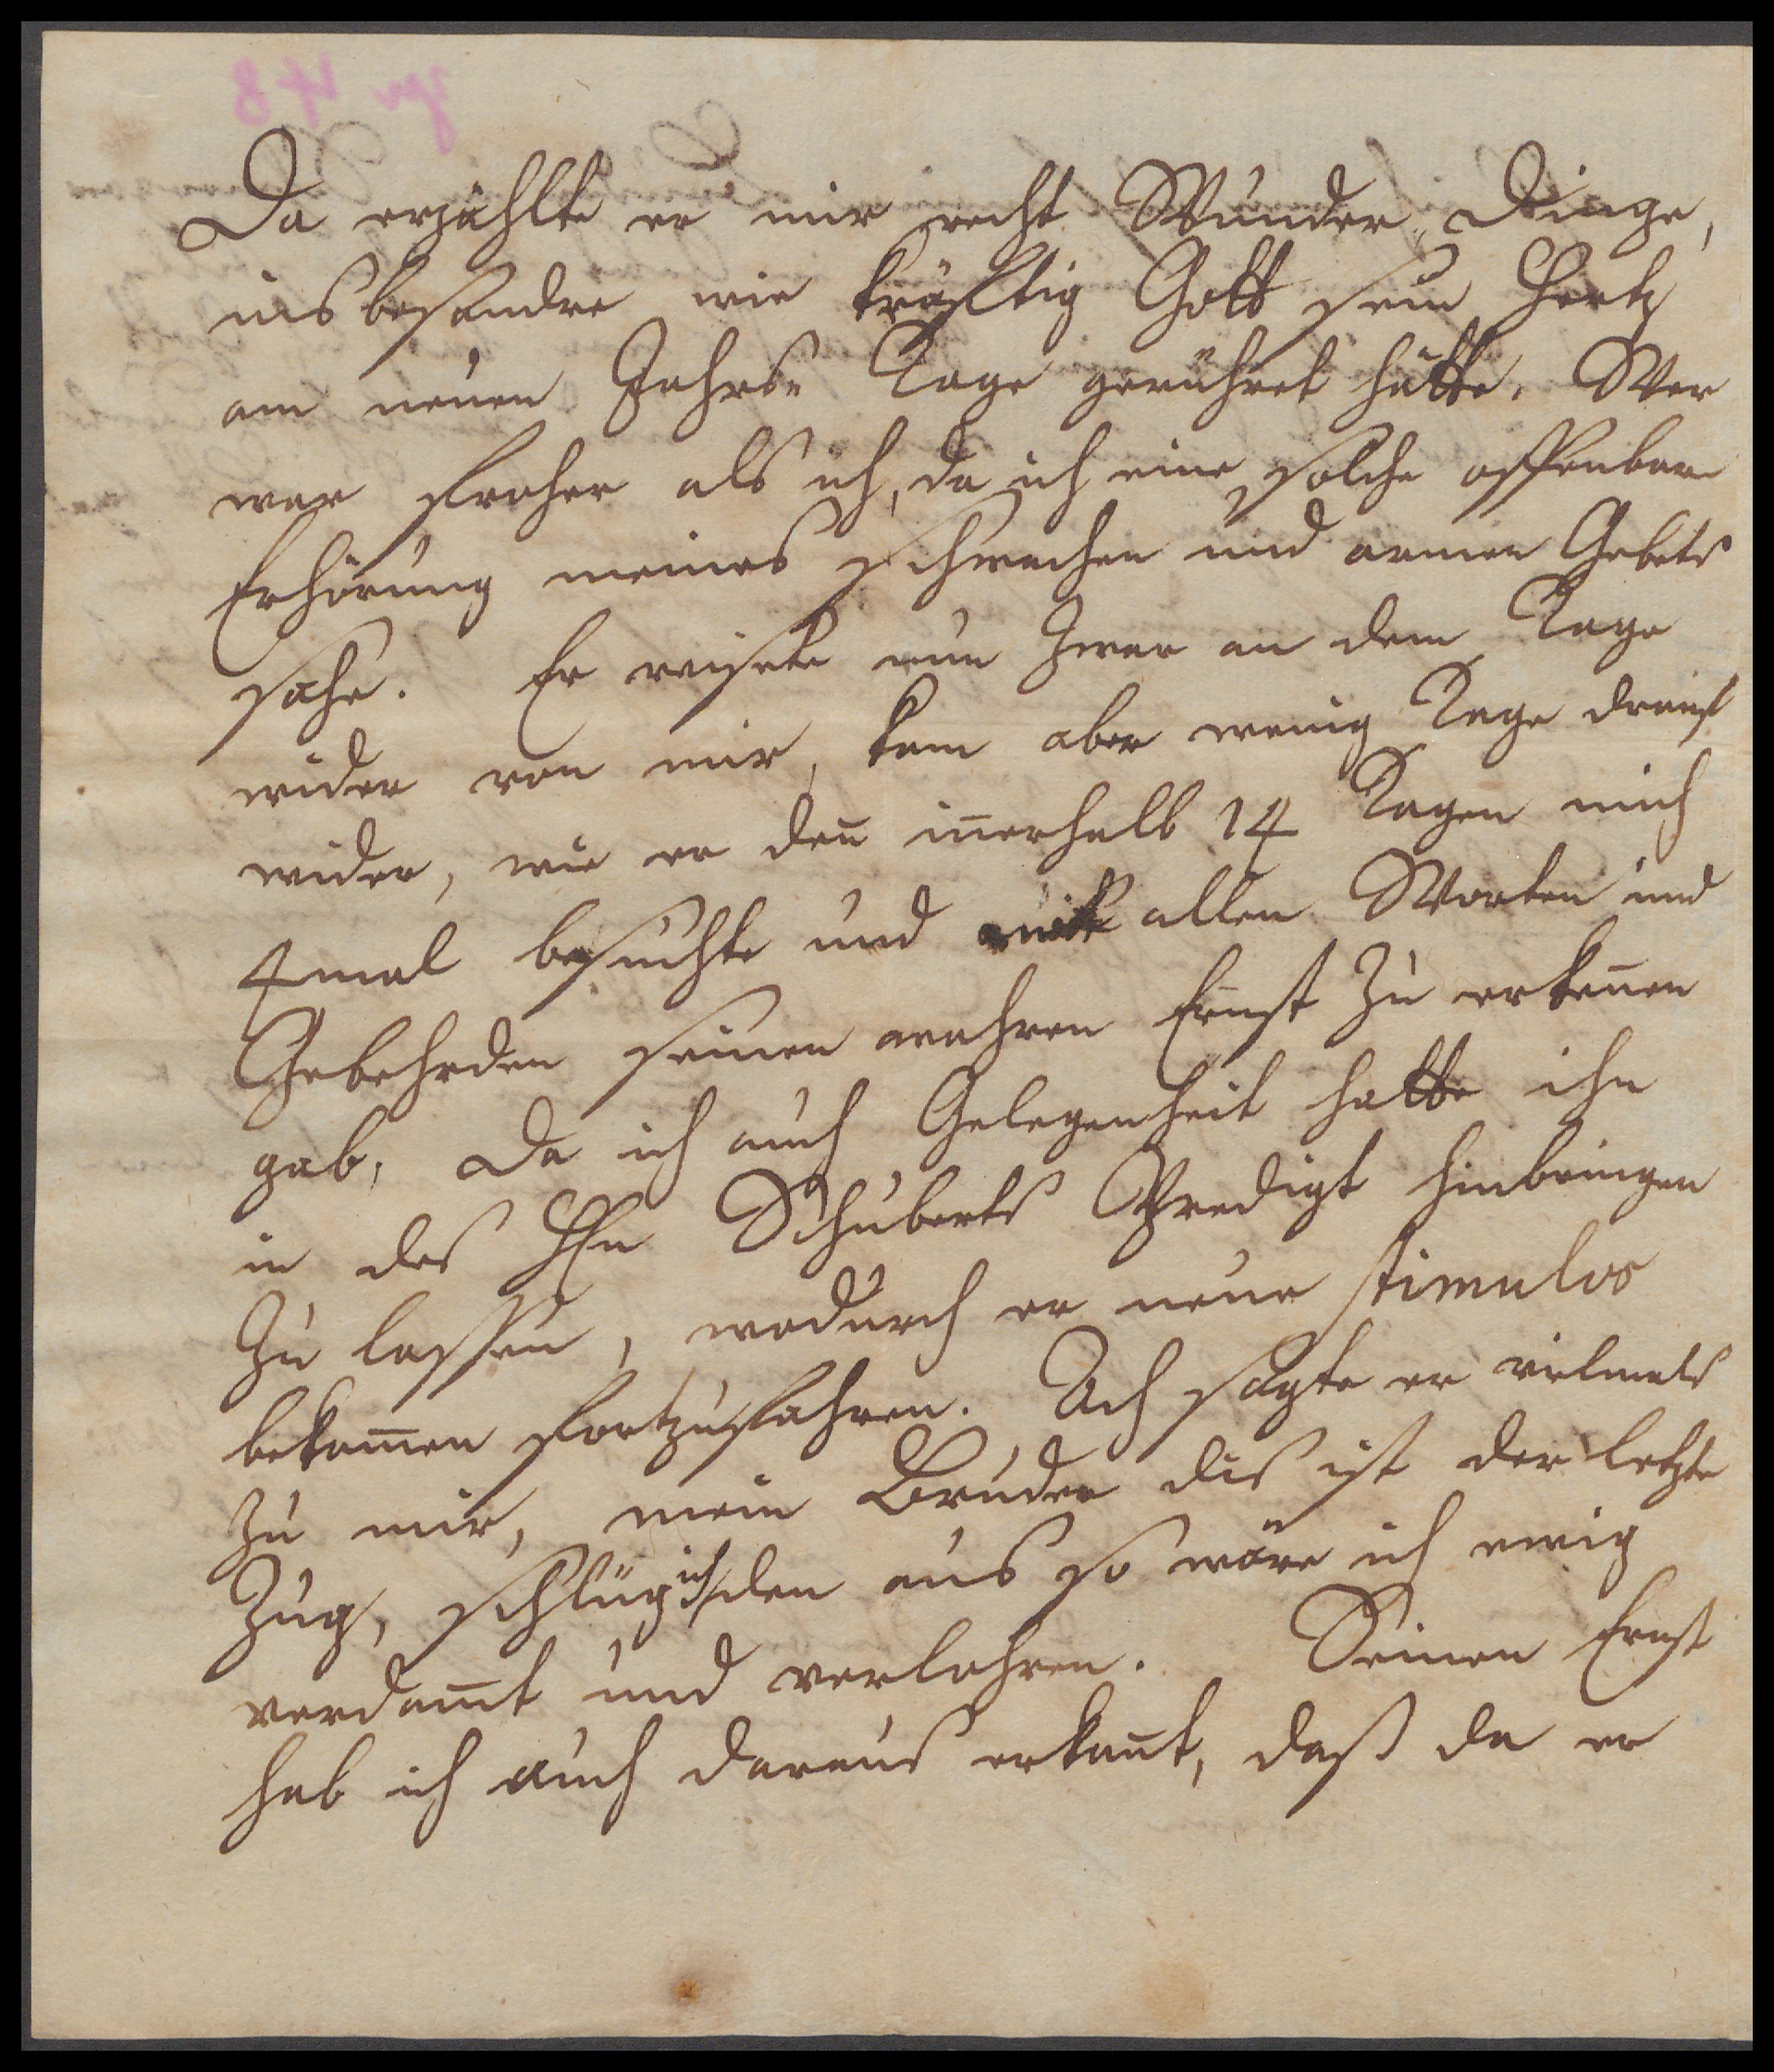 Da erzählte er mir recht Wunder Dinge,
insbesondre wie kräftig Gott sein Hertz
am neuen Jahrs- Tage gerühret hätte. Wer
war froher als ich, da ich eine solche offenbare
Erhörung meines schwachen und armen Gebets
sahe. Er reisete nun zwar an dem Tage
wider von mir, kam aber wenig Tage drauf
wider, wie er den̄ in̄erhalb 14 Tagen mich
4mal besuchte und mit allen Worten und
Gebehrden seinen wahren Ernst zu erken̄en
gab, Da ich auch Gelegenheit hatte ihn
in des HEn Schuberts Predigt hinbringen
zu lassen, wodurch er neue stimulos
bekom̄en fortzufahren. Ach sagte er vielmals
zu mir, mein Bruder dis ist der letzte
Zug, schlüg ich den aus so wäre ich ewig
verdam̄t und verlohren. Seinen Ernst
hab ich auch daraus erkan̄t, daß da er